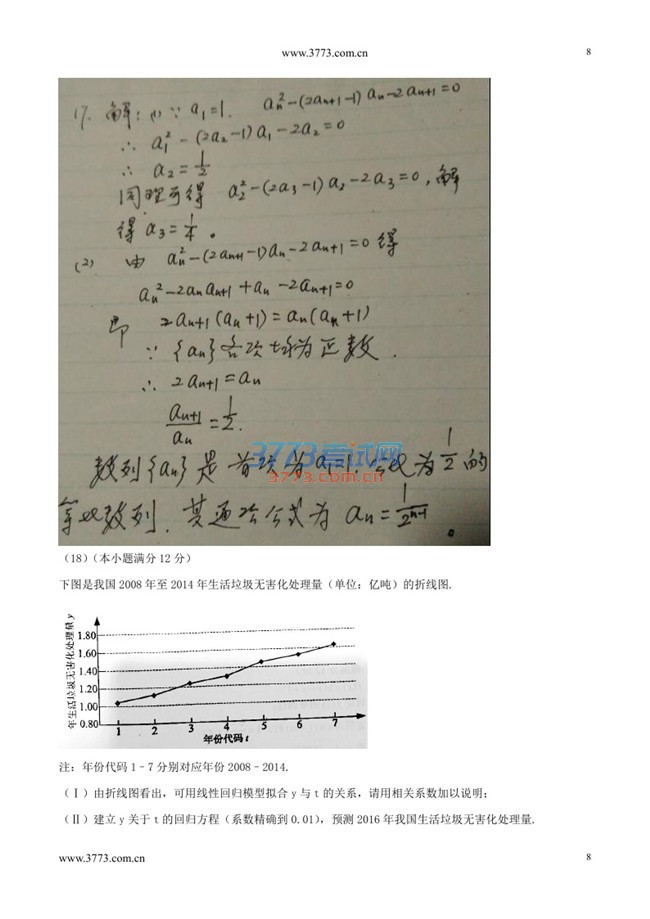 www.3773.com.cn 8
17. 解：(1) ∵ a₁=1. aₙ²-(2aₙ₊₁-1)aₙ-2aₙ₊₁=0
∴ a₁²-(2a₂-1)a₁-2a₂=0
∴ a₂=1/2
同理可得 a₂²-(2a₃-1)a₂-2a₃=0，解
得 a₃=1/4。
(2) 由 aₙ²-(2aₙ₊₁-1)aₙ-2aₙ₊₁=0 得
aₙ²-2aₙaₙ₊₁+aₙ-2aₙ₊₁=0
即 2aₙ₊₁(aₙ+1)=aₙ(aₙ+1)
∵ {aₙ}各项均为正数.
∴ 2aₙ₊₁=aₙ
aₙ₊₁/aₙ=1/2.
3773考试网
3773.com.cn
数列{aₙ}是首项为a₁=1.公比为1/2的
等比数列.其通项公式为 aₙ=1/2ⁿ⁻¹。
（18）（本小题满分12分）
下图是我国2008年至2014年生活垃圾无害化处理量（单位：亿吨）的折线图.
年生活垃圾无害化处理量 y
1.80
1.60
1.40
1.20
1.00
0.80
1 2 3 4 5 6 7
年份代码 t
注：年份代码1–7分别对应年份2008–2014.
（Ⅰ）由折线图看出，可用线性回归模型拟合y与t的关系，请用相关系数加以说明；
（Ⅱ）建立y关于t的回归方程（系数精确到0.01），预测2016年我国生活垃圾无害化处理量.
www.3773.com.cn 8